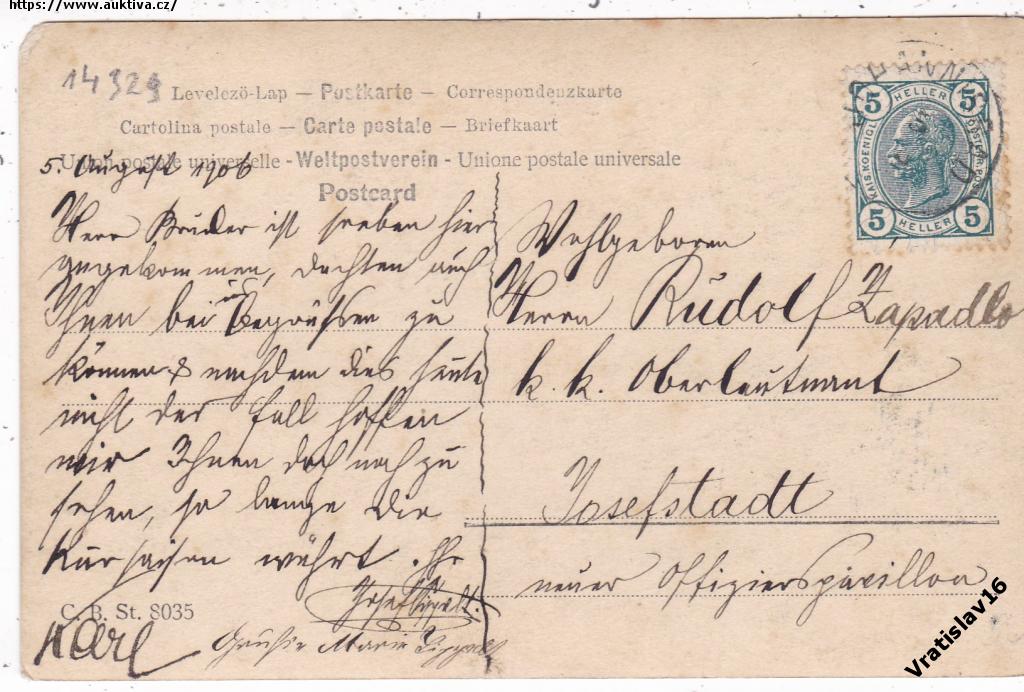 https://www.auktiva.cz/
14329
Levelezö-Lap — Postkarte — Correspondenzkarte
Cartolina postale — Carte postale — Briefkaart
Union postale universelle - Weltpostverein - Unione postale universale
Postcard
5. August 1906
Herr Bruder ist soeben hier
angekommen, dachten auch
Ihnen bei uns Begrüßen zu
können & nachdem dies heute
nicht der Fall hoffen
wir Ihnen doch noch zu
sehen, so lange die
Kursaison währt. Ihr
Josef
C. B. St. 8035
Karl
Grüße Marie
5 HELLER 5
KAIS. KOENIGL. OESTERR. POST
5 HELLER 5
Wohlgeboren
Herrn Rudolf Zapadlo
k. k. Oberleutnant
Josefstadt
neuer Offizierspavillon
Vratislav16